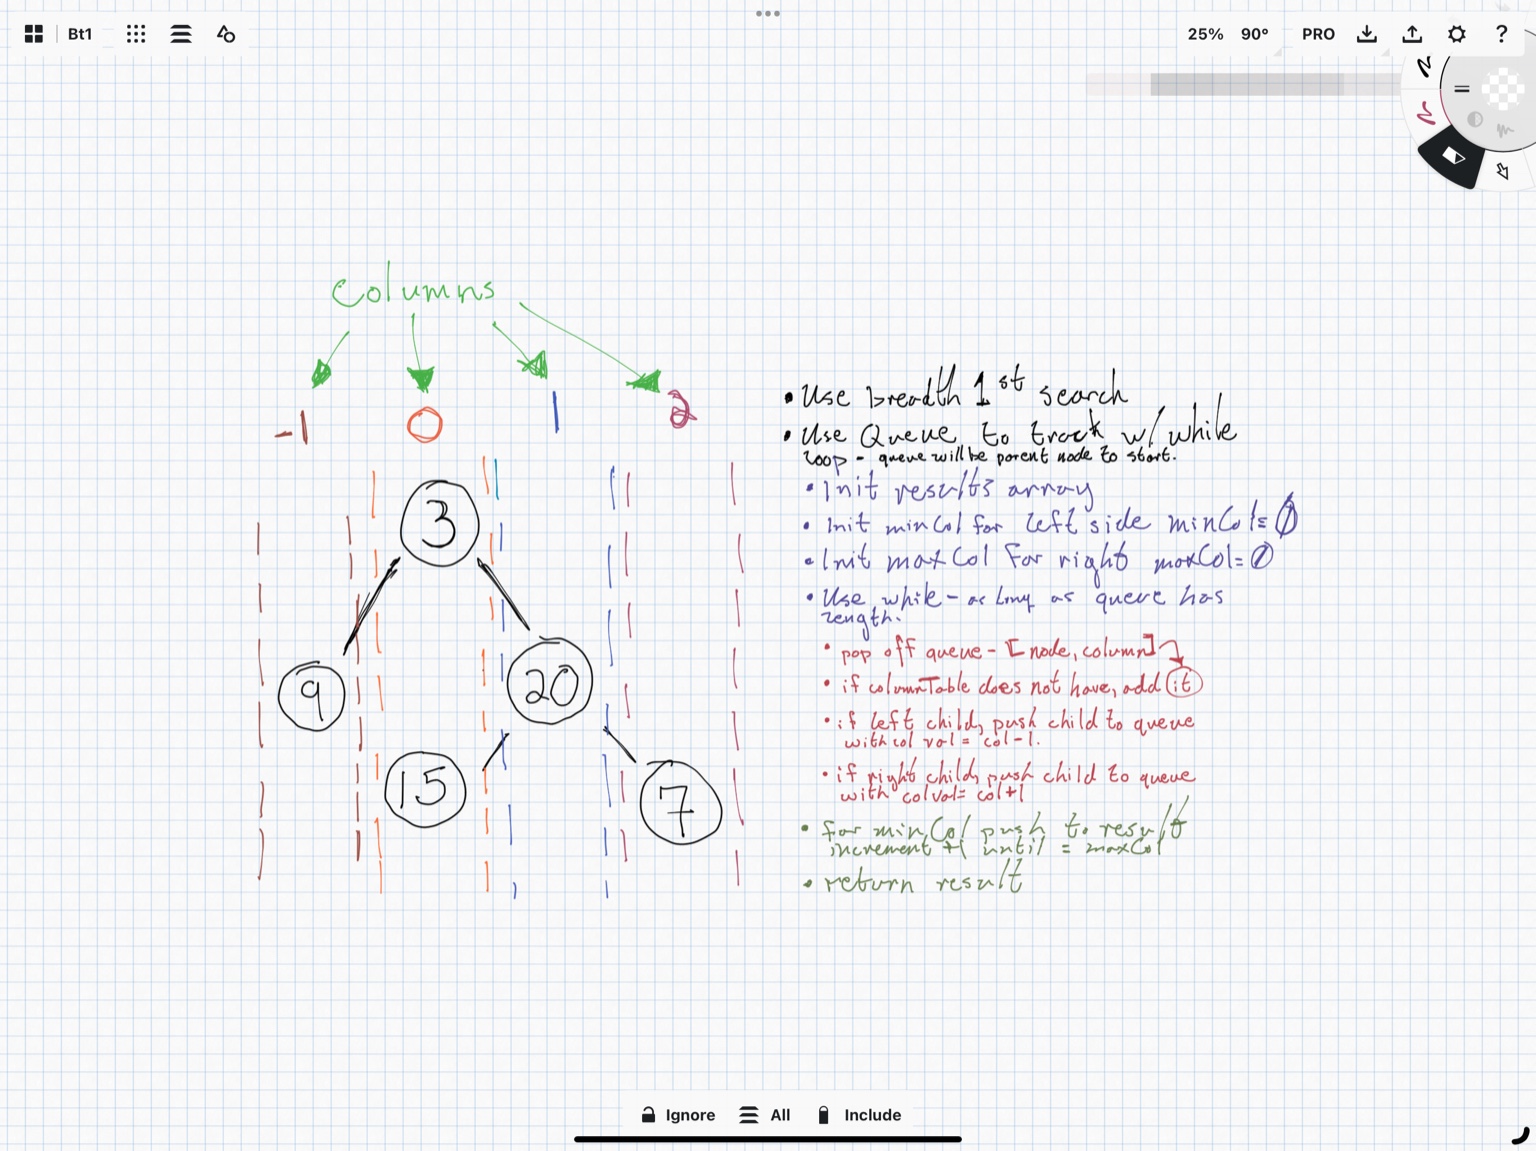 Bt1
25% 90° PRO ?
Columns
-1 0 1 2
3
9
20
15
7
• Use breadth 1st search
• Use Queue to track w/ while
loop - queue will be parent node to start.
• Init results array
• Init minCol for left side minCol=0
• Init maxCol for right maxCol=0
• Use while - as long as queue has
length.
• pop off queue - [node, column]
• if columnTable does not have, add it
• if left child, push child to queue
with col val = col-1.
• if right child, push child to queue
with colval= col+1
• for minCol push to result
increment +1 until = maxCol
• return result
Ignore All Include